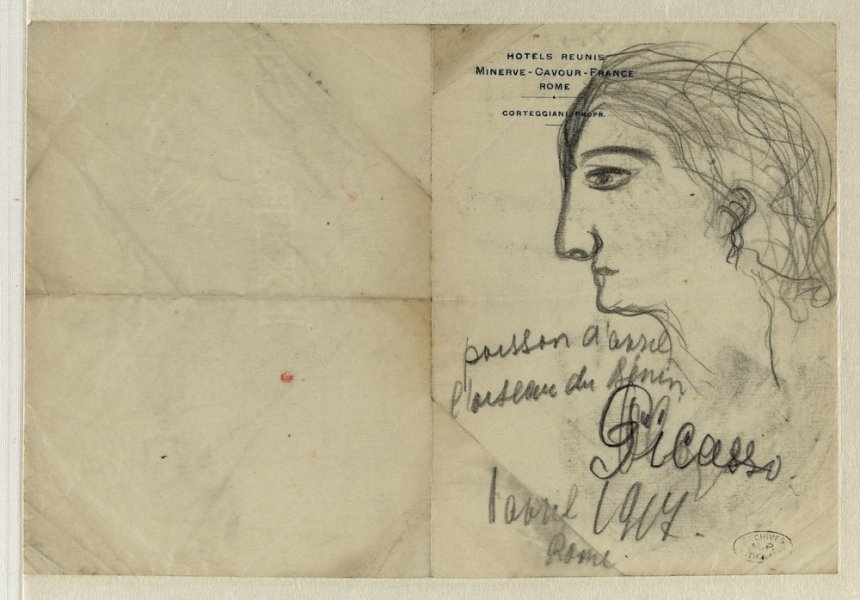 HOTELS REUNIS
MINERVE - CAVOUR - FRANCE
ROME
CORTEGGIANI, PROPR.
poisson d'avril
l'oiseau du Bénin
Picasso
1 avril 1917.
Rome.
ARCHIVES
M.P.